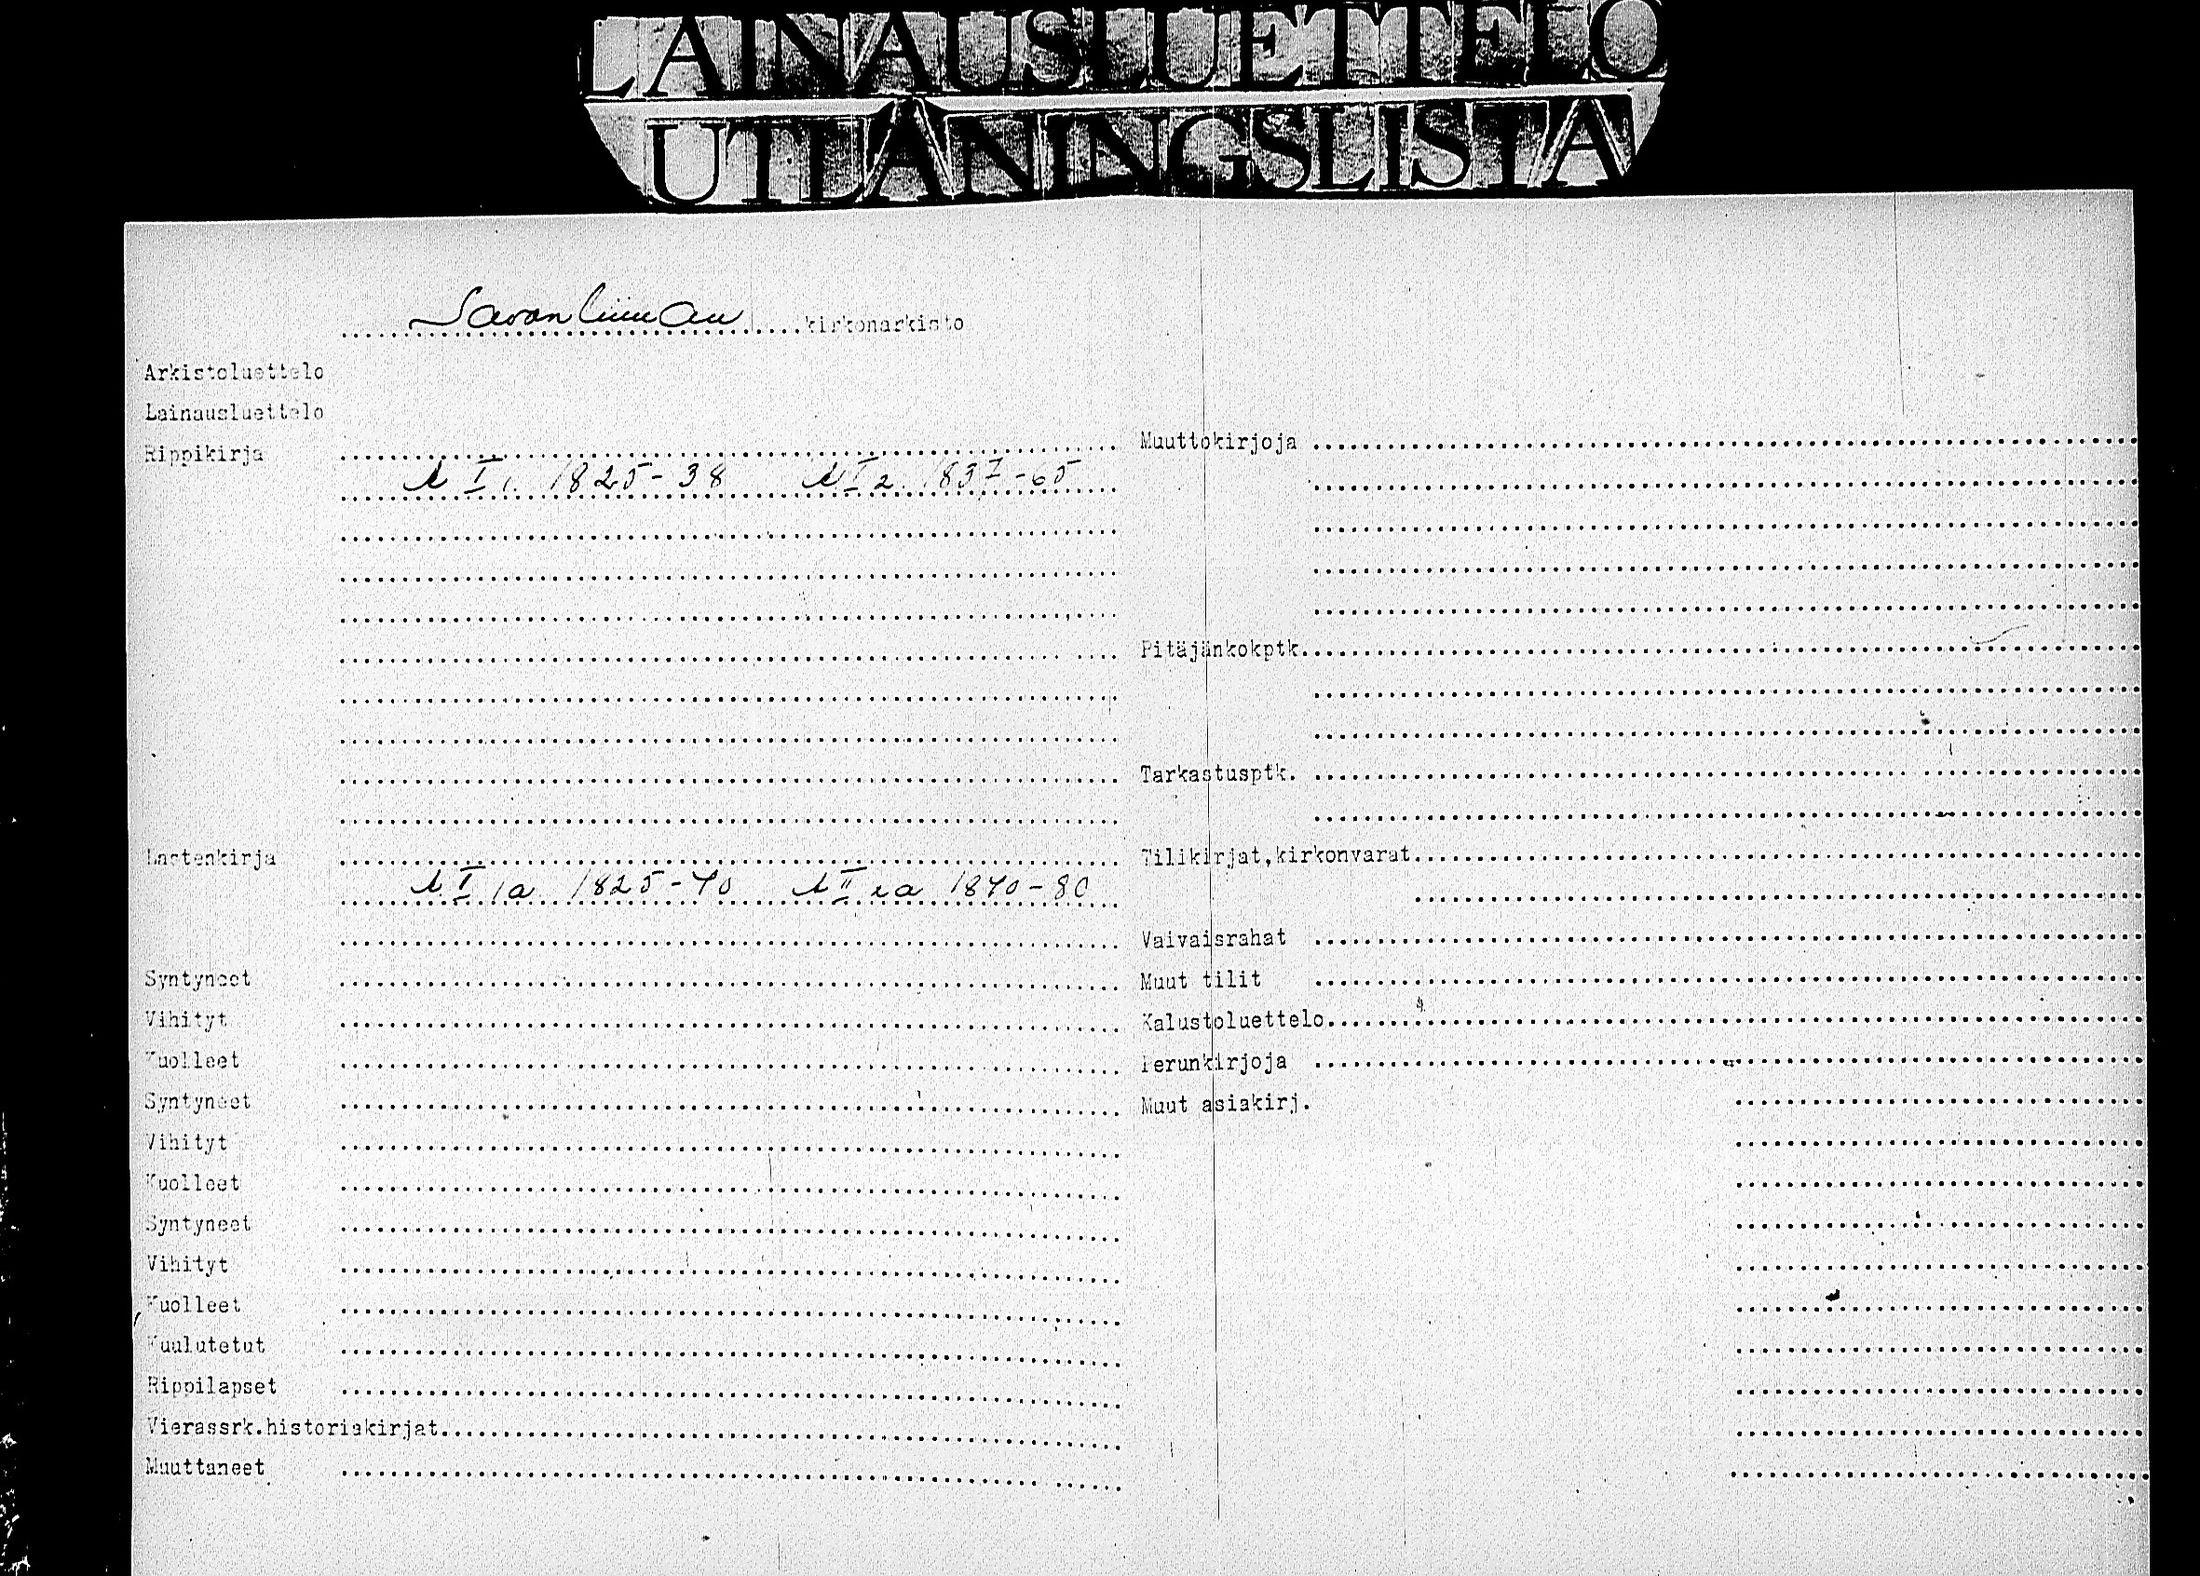 LAINAUSLUETTELO
UTLÅNINGSLISTA
Savonlinnan kirkonarkisto
Arkistoluettelo
Lainausluettelo
Rippikirja
I 1. 1825-38 I 2. 1837-65
Lastenkirja
I 1a 1825-40 II 2a 1840-80
Syntyneet
Vihityt
Kuolleet
Syntyneet
Vihityt
Kuolleet
Syntyneet
Vihityt
Kuolleet
Kuulutetut
Rippilapset
Vierassrk.historiakirjat
Muuttaneet
Muuttokirjoja
Pitäjänkokptk.
Tarkastusptk.
Tilikirjat,kirkonvarat
Vaivaisrahat
Muut tilit
Kalustoluettelo
Perunkirjoja
Muut asiakirj.